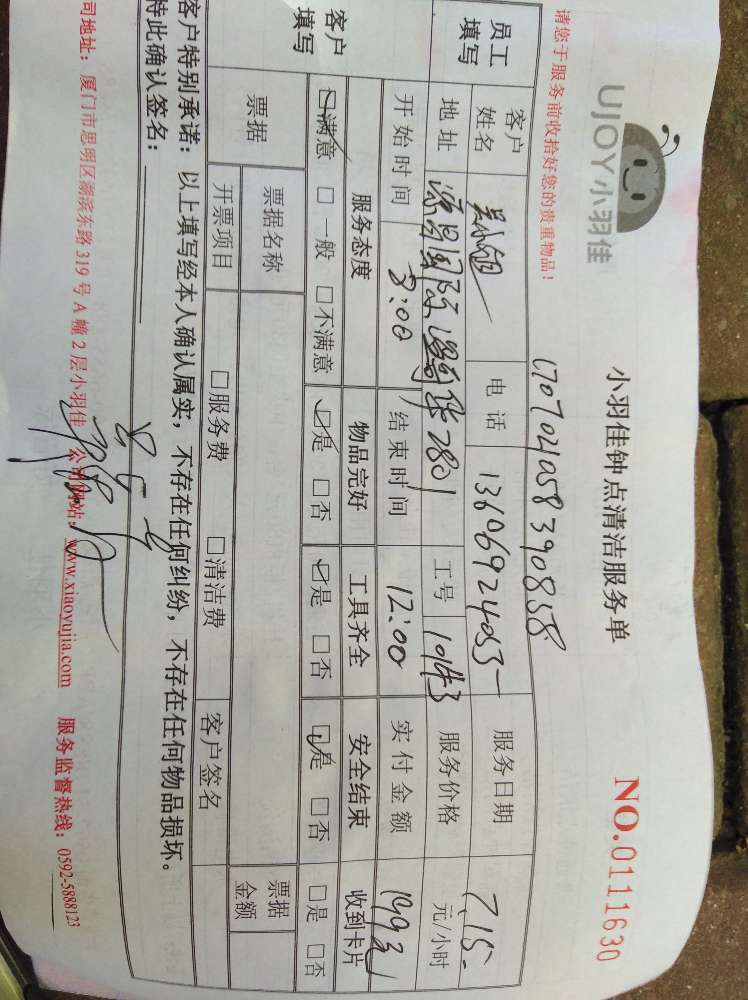 UJOY小羽佳
小羽佳钟点清洁服务单
NO.0111630
请您于服务前收拾好您的贵重物品!
170704058390858
员工填写
客户姓名
电话 13606924053
服务日期 7.15
地址 源昌国际 2801
工号 10143
服务价格 元/小时
开始时间 8:00
结束时间 12:00
实付金额 149元
客户填写
服务态度 物品完好 工具齐全 安全结束 收到卡片
☑满意 □一般 □不满意 ☑是 □否 ☑是 □否 ☑是 □否 □是 □否
票据
票据名称
票据金额
开票项目 □服务费 □清洁费 客户签名
客户特别承诺:以上填写经本人确认属实,不存在任何纠纷,不存在任何物品损坏。
特此确认签名:
司地址:厦门市思明区湖滨东路319号A幢2层小羽佳 公司网站:www.xiaoyujia.com 服务监督热线:0592-5888123